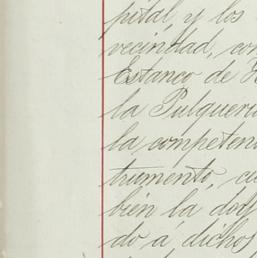 pital, y los
vecindad, con
Estanco de
la Pulquería
la competen
trumento, cu
bien la do
do á dichos